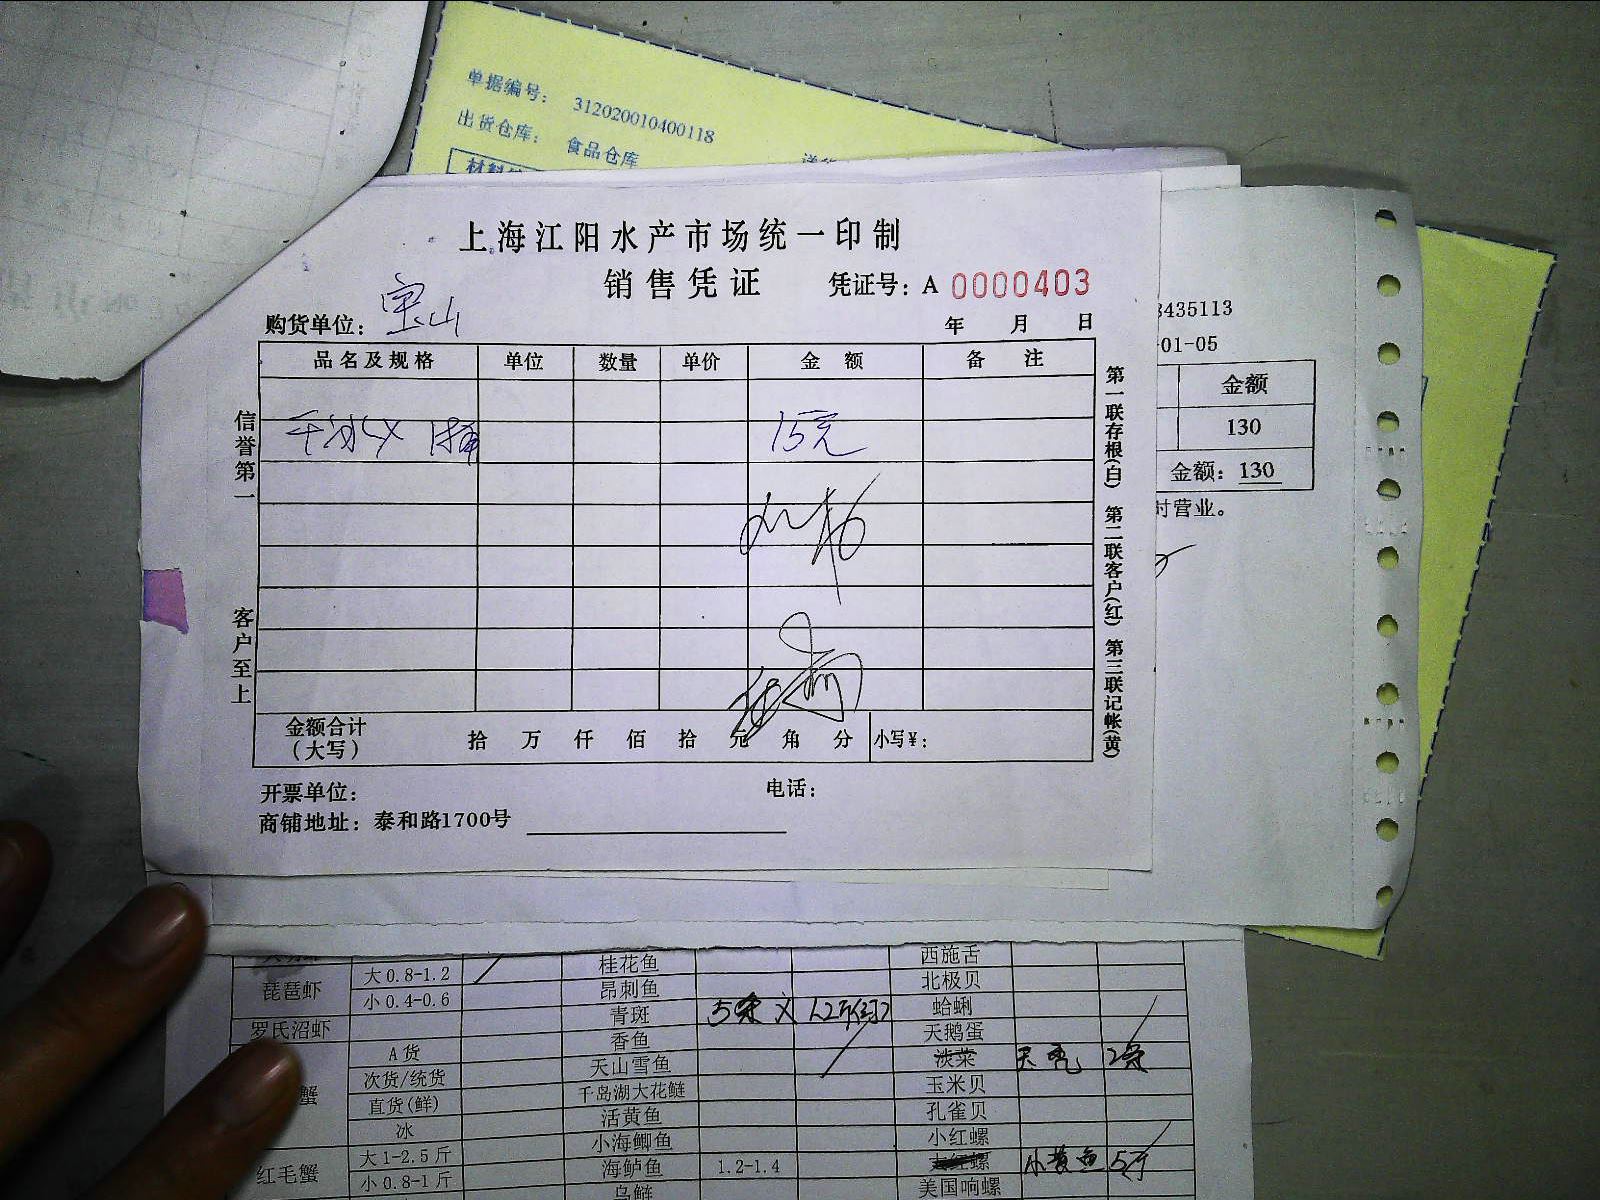 单据编号： 312020010400118
出货仓库： 食品仓库
上海江阳水产市场统一印制
销售凭证 凭证号：A 0000403
购货单位： 宝山 年 月 日
品名及规格 单位 数量 单价 金额 备注
15元
金额合计（大写） 拾 万 仟 佰 拾 元 角 分 小写¥：
开票单位： 电话：
商铺地址：泰和路1700号
信誉第一 客户至上
第一联存根（白） 第二联客户（红） 第三联记帐（黄）
8435113
-01-05
金额
130
金额：130
时营业。
大0.8-1.2 桂花鱼 西施舌
琵琶虾 小0.4-0.6 昂刺鱼 北极贝
青斑 蛤蜊
罗氏沼虾 香鱼 天鹅蛋
A货 天山雪鱼 淡菜 2只
蟹 次货/统货 千岛湖大花鲢 玉米贝
直货(鲜) 活黄鱼 孔雀贝
冰 小海鲫鱼 小红螺
红毛蟹 大1-2.5斤 海鲈鱼 1.2-1.4 小黄鱼 5斤
小0.8-1斤 乌鲢 美国响螺